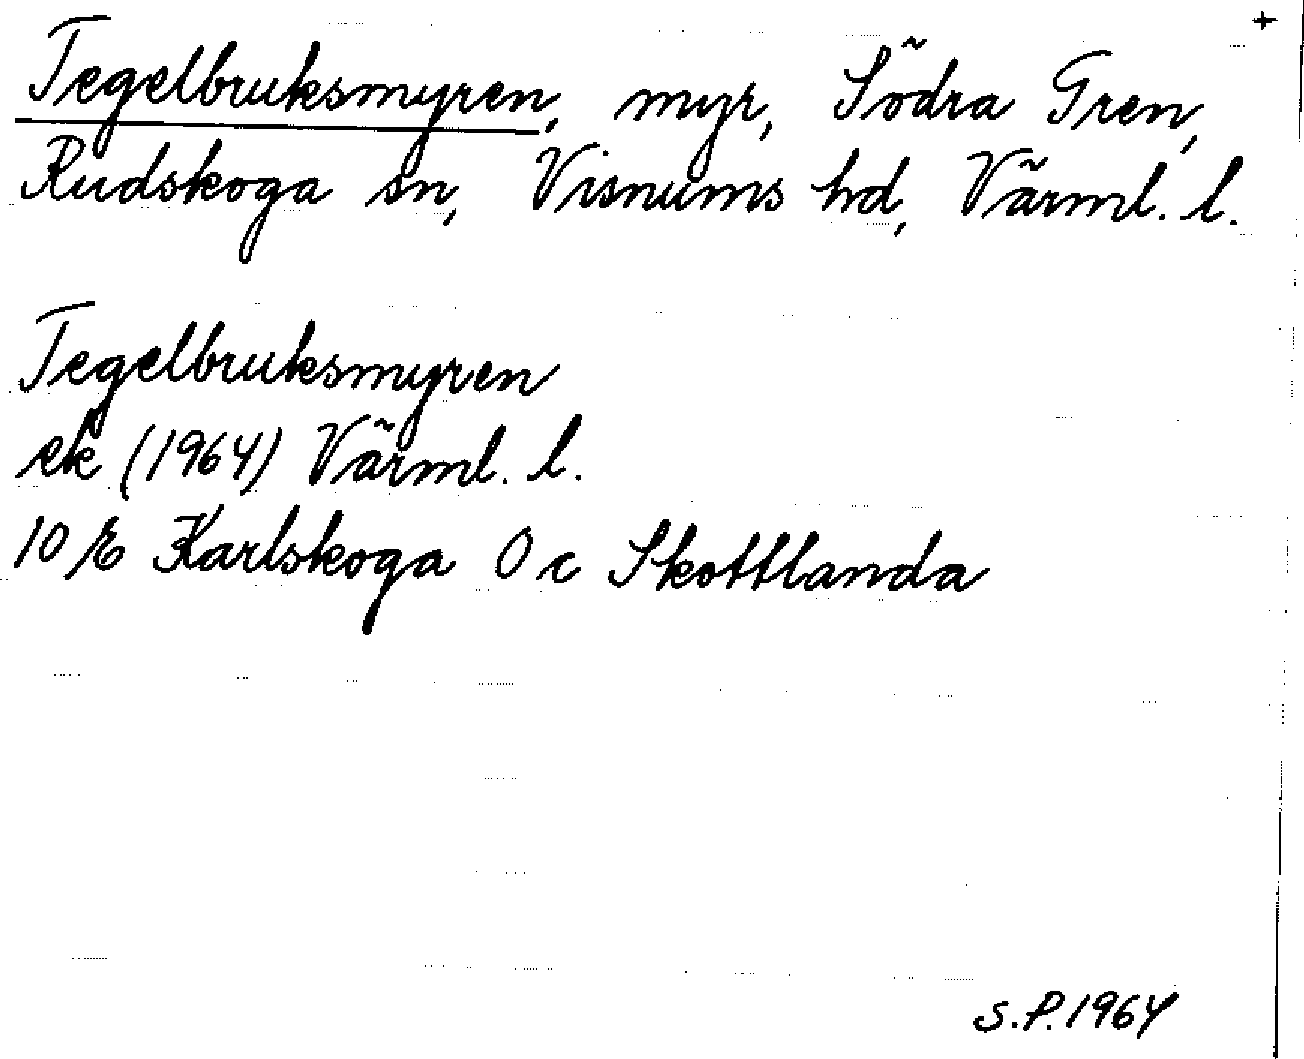 +
Tegelbruksmyren, myr, Södra Gren,
Rudskoga sn, Visnums hd, Värml. l.
Tegelbruksmyren
ek (1964) Värml. l.
10 E Karlskoga 0 c Skottlanda
S.P. 1964